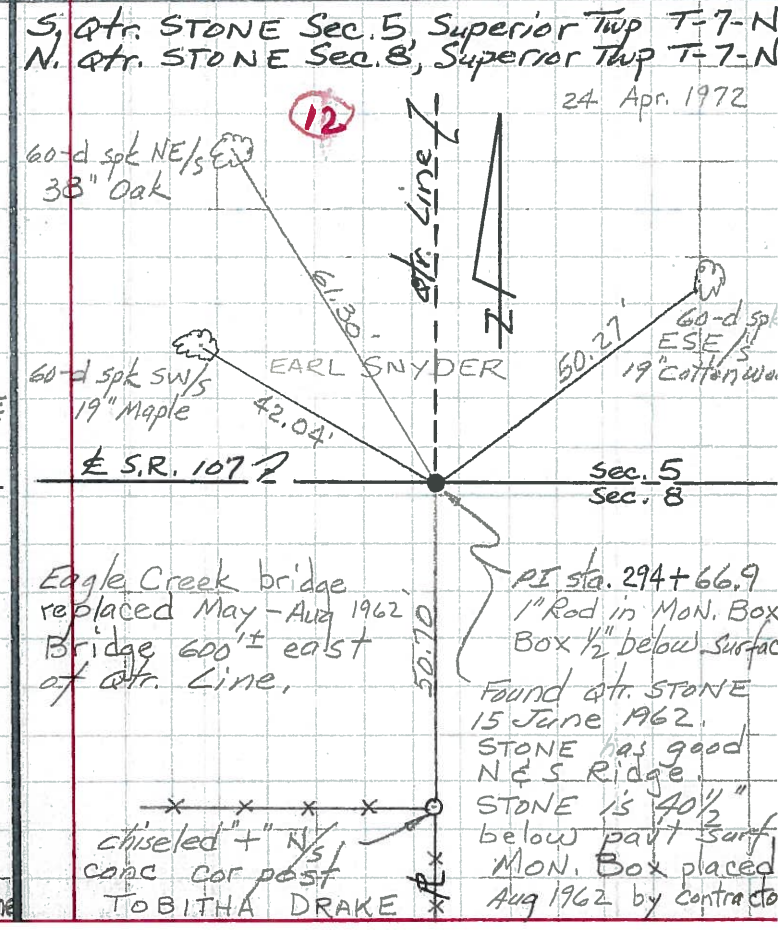 S. Qtr. STONE Sec. 5, Superior Twp T-7-N
N. Qtr. STONE Sec. 8, Superior Twp T-7-N
24 Apr. 1972
12
60-d spk NE/s
38" Oak
Qtr. Line
N
61.30'
60-d spk
ESE/s
19" Cottonwoo
50.27'
EARL SNYDER
60-d spk SW/s
19" Maple
42.04'
℄ S.R. 107
Sec. 5
Sec. 8
Eagle Creek bridge
replaced May-Aug 1962
Bridge 600'± east
of Qtr. Line.
50.70'
PI sta. 294+66.9
1" Rod in MON. Box
Box 1/2" below surfac
Found Qtr. STONE
15 June 1962.
STONE has good
N & S Ridge.
STONE is 40 1/2"
below pavt surf.
MON. Box placed
Aug 1962 by contracto
chiseled "+" N/s
conc cor post
TOBITHA DRAKE